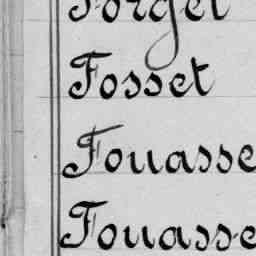 Forget
Fosset
Fouasse
Fouasse